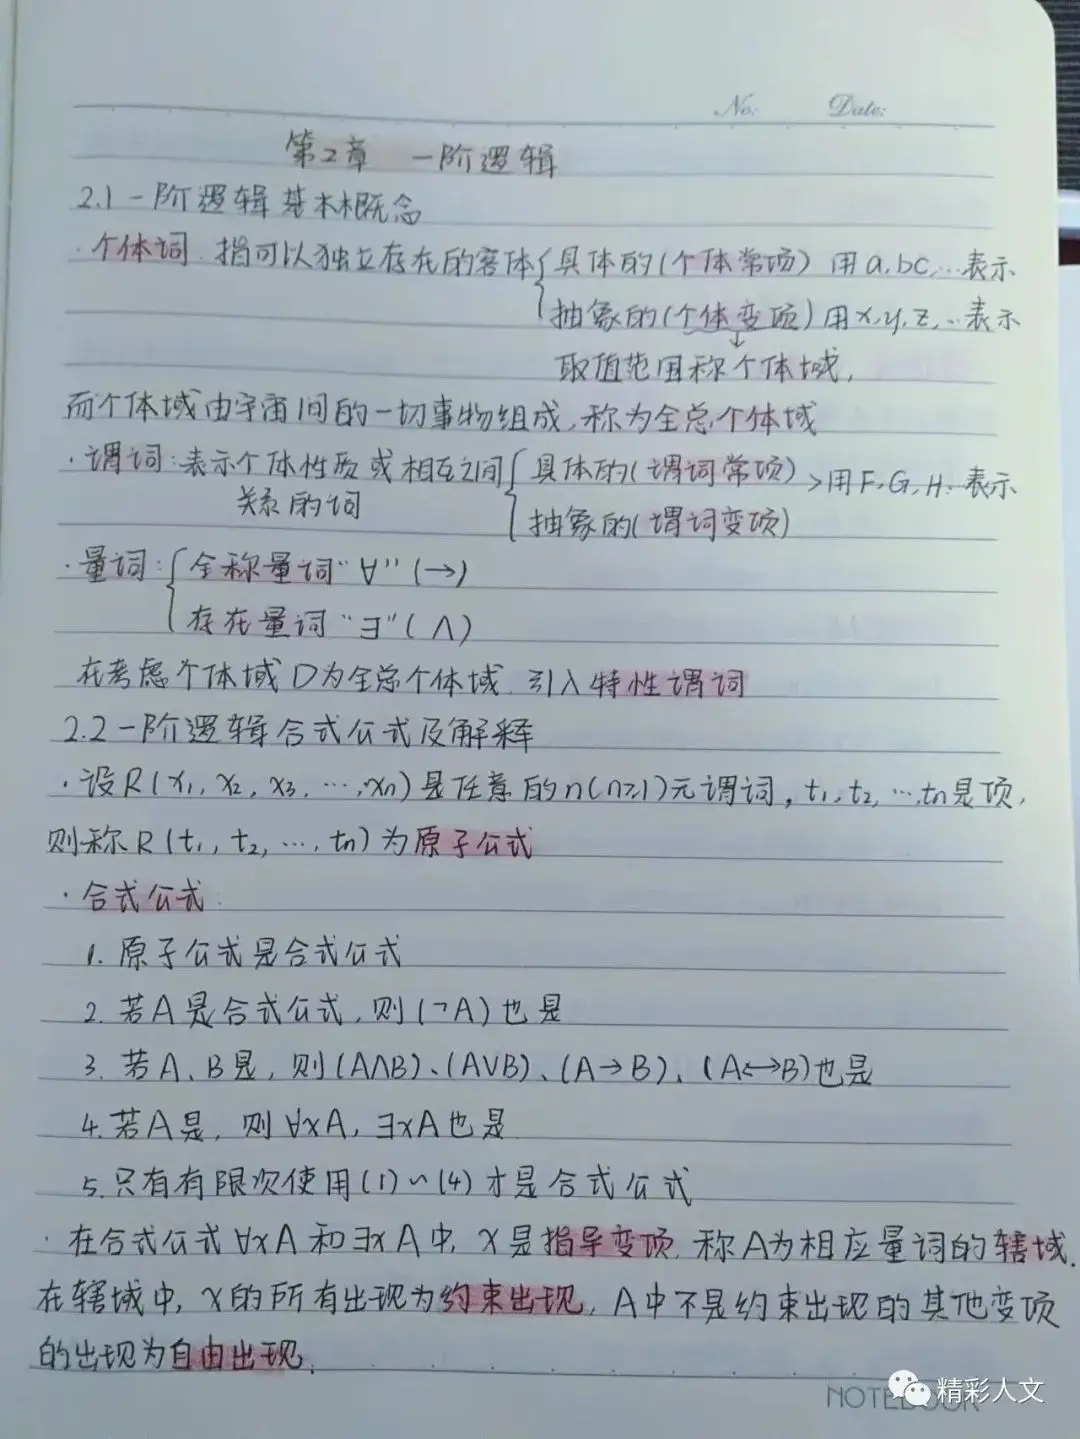 No:  Date:
第2章 一阶逻辑
2.1 一阶逻辑基本概念
·个体词.指可以独立存在的客体{具体的(个体常项) 用a,bc,…表示
抽象的(个体变项)用x,y,z,…表示
↓
取值范围称个体域,
而个体域由宇宙间的一切事物组成,称为全总个体域
·谓词:表示个体性质或相互之间{具体的(谓词常项) >用F,G,H…表示
关系的词
抽象的(谓词变项)
·量词:{全称量词"∀"(→)
存在量词"∃"(∧)
在考虑个体域D为全总个体域.引入特性谓词
2.2 一阶逻辑合式公式及解释
·设R(x₁,x₂,x₃,…,xn)是任意的n(n≥1)元谓词,t₁,t₂,…,tn是项,
则称R(t₁,t₂,…,tn)为原子公式
·合式公式:
1.原子公式是合式公式
2.若A是合式公式,则(¬A)也是
3.若A、B是,则(A∧B)、(A∨B)、(A→B)、(A↔B)也是
4.若A是,则∀xA,∃xA也是
5.只有有限次使用(1)~(4)才是合式公式
·在合式公式∀xA和∃xA中,x是指导变项.称A为相应量词的辖域.
在辖域中,x的所有出现为约束出现,A中不是约束出现的其他变项
的出现为自由出现.
NOTEBOOK
精彩人文